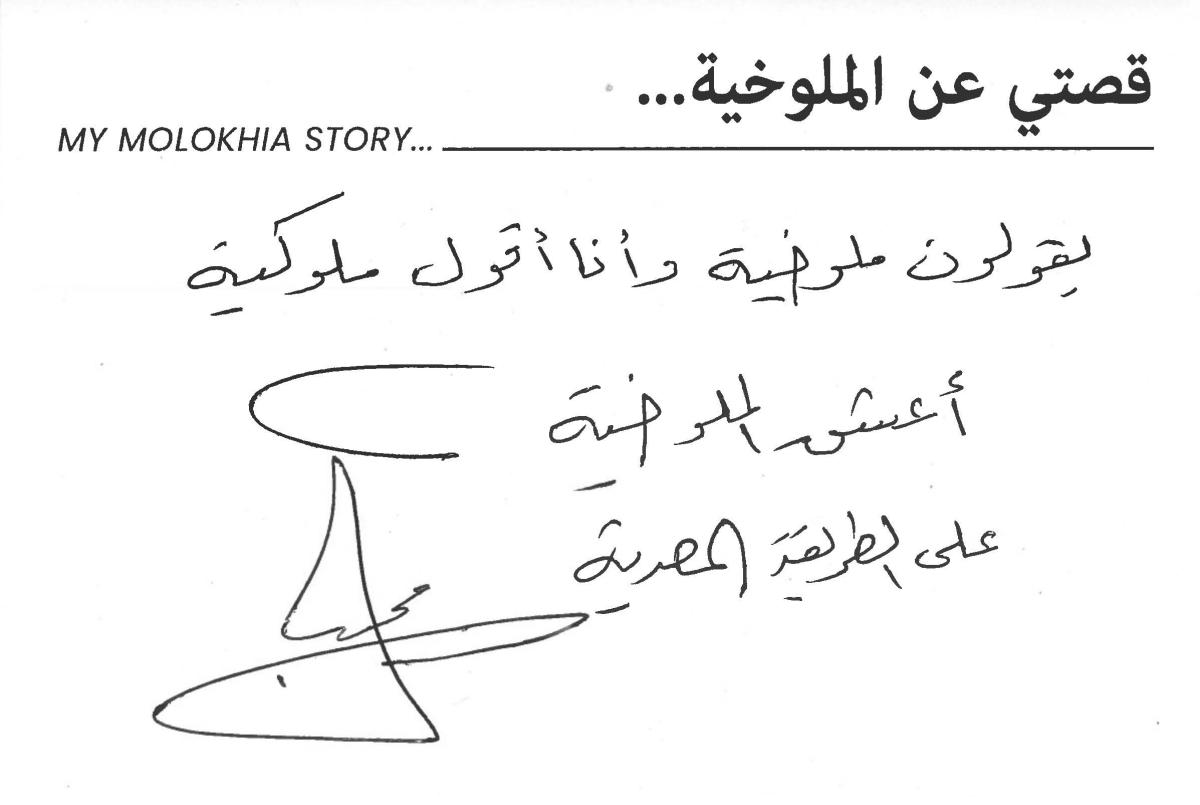 قصتي عن الملوخية...
MY MOLOKHIA STORY...
يقولون ملوخية وأنا أقول ملوكية
أعشق الملوخية
على الطريقة المصرية